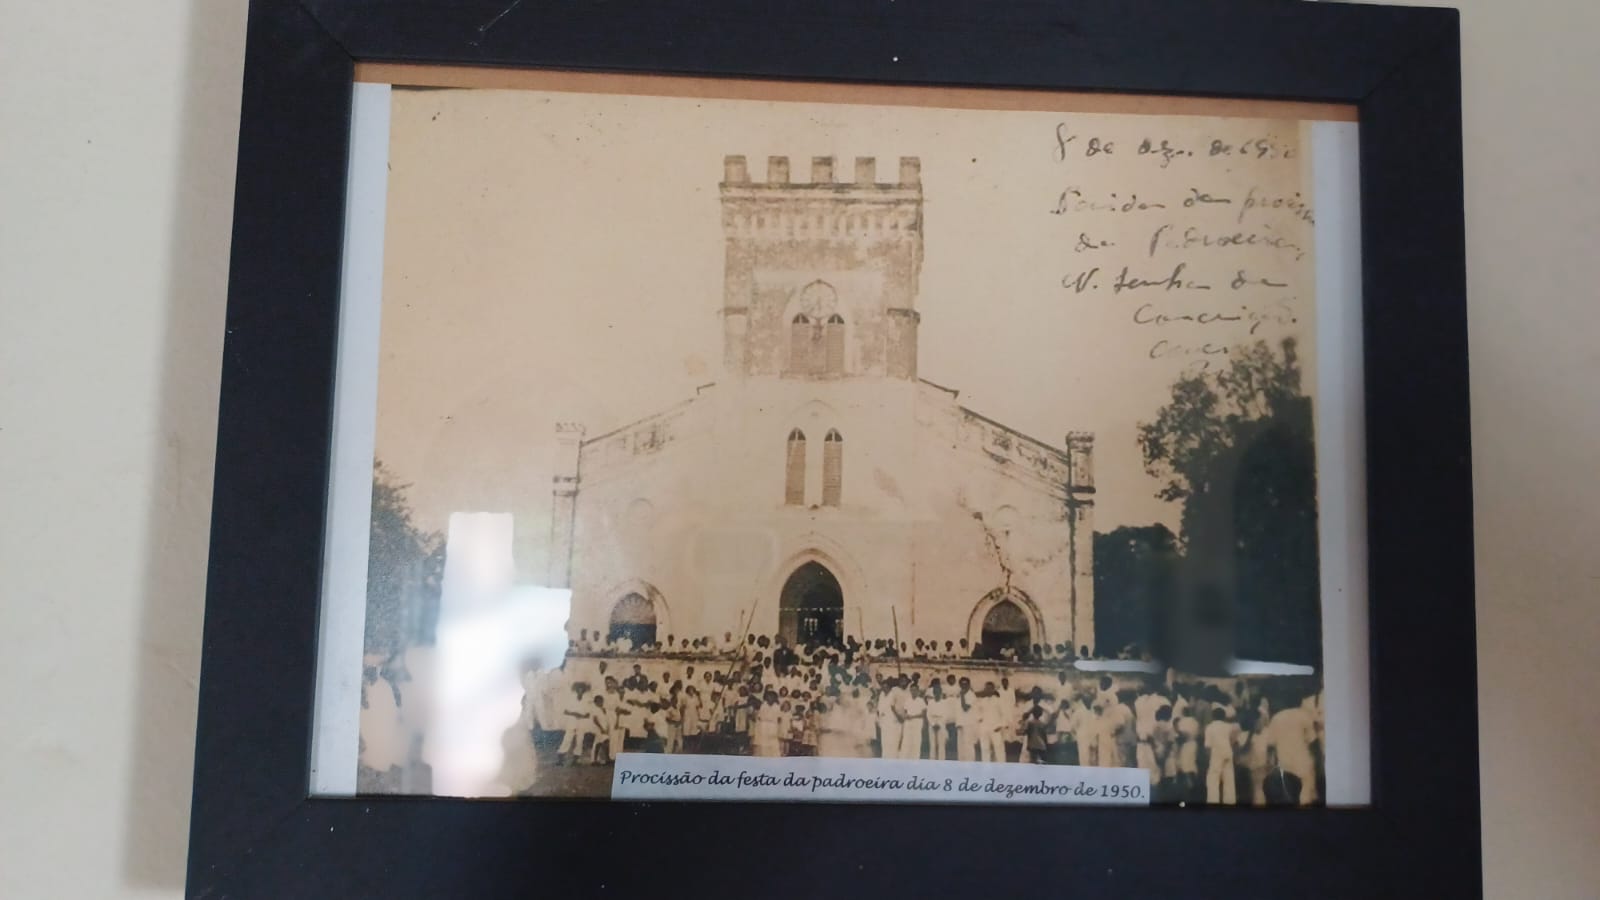 8 de dez. de 1950
da
da Padroeira,
N. Senhora da
Conceição.
Procissão da festa da padroeira dia 8 de dezembro de 1950.